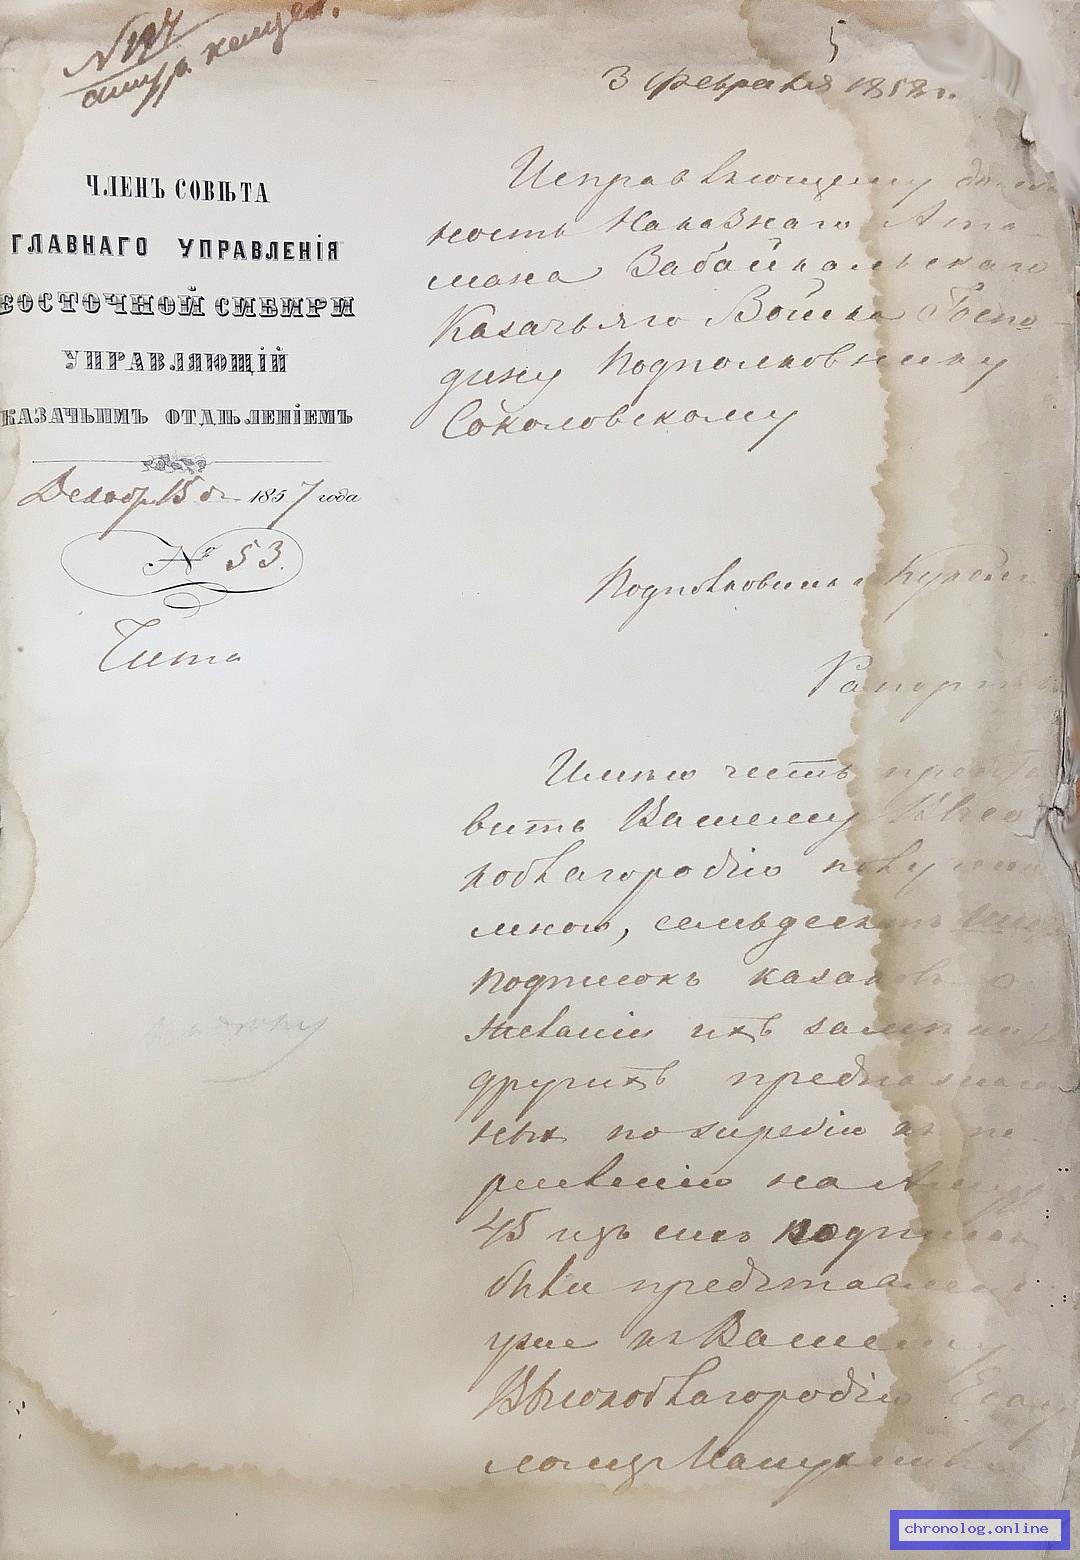 №
5
3 февраля 1858 г.
ЧЛЕНЪ СОВѢТА
ГЛАВНАГО УПРАВЛЕНІЯ
ВОСТОЧНОЙ СИБИРИ
УПРАВЛЯЮЩІЙ
КАЗАЧЬИМЪ ОТДѢЛЕНІЕМЪ
15 1857 года
№ 53.
Чита
Исправляющему долж
ность Наказнаго Ата-
мана Забайкальскаго
Казачьяго Войска Госпо-
дину Подполковнику
Соколовскому
Подполковника
Рапортъ
Имѣю честь предста
вить Вашему Высо
коблагородію
мною, семьдесятъ
подписокъ казаковъ о
желаніи ихъ
другихъ предназначен
ныхъ по жребію къ пе-
реселенію на Амуръ
45 изъ подписокъ
были представлены
уже къ Вашему
Высокоблагородію Есау
ломъ
chronolog.online